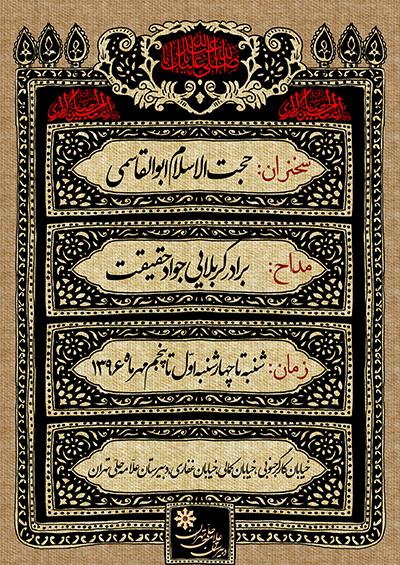 صلی الله علیک یا اباعبدالله
سخنران: حجت الاسلام ابوالقاسمی
مداح: برادر کربلایی جواد حقیقت
زمان: شنبه تا چهارشنبه اول تا پنجم مهر ماه ۱۳۹۶
خیابان کارگر جنوبی، خیابان کمالی، خیابان غفاری، دبیرستان علامه حلی تهران